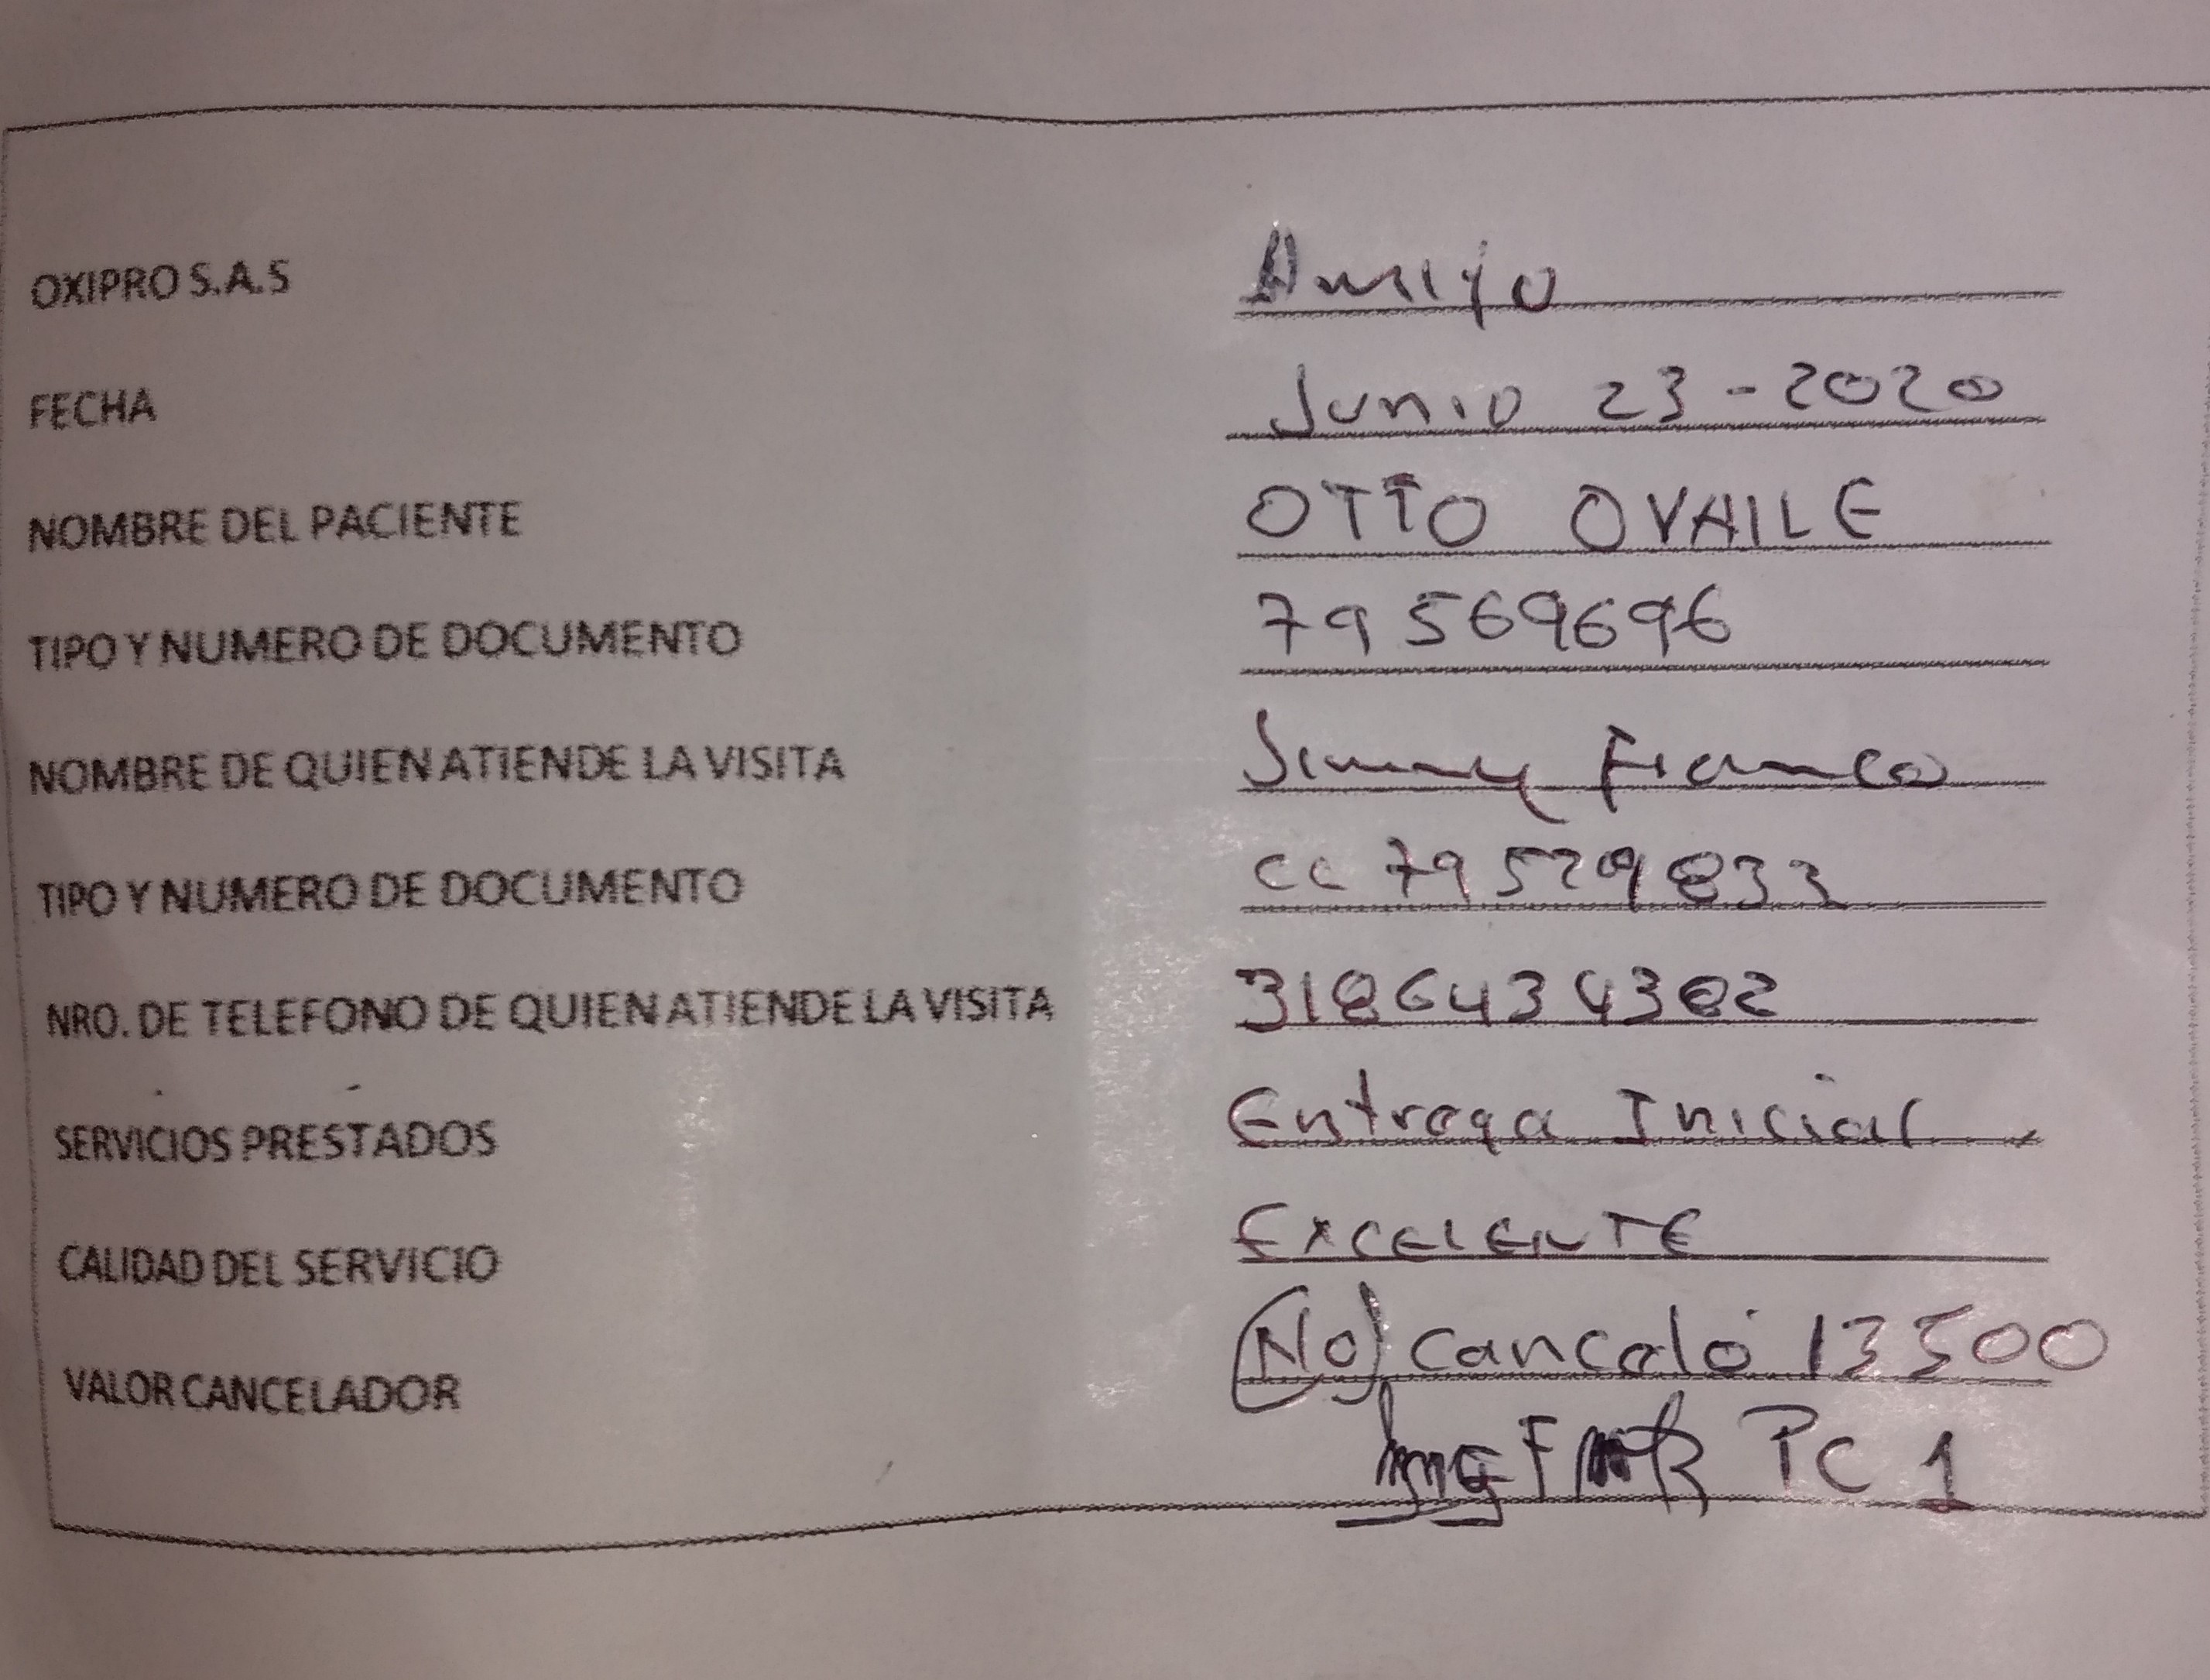 OXIPRO S.A.S
FECHA Junio 23-2020
NOMBRE DEL PACIENTE OTTO OVAILE
TIPO Y NUMERO DE DOCUMENTO 79569696
NOMBRE DE QUIEN ATIENDE LA VISITA Jimmy Franco
TIPO Y NUMERO DE DOCUMENTO CC 79529833
NRO. DE TELEFONO DE QUIEN ATIENDE LA VISITA 3186434382
SERVICIOS PRESTADOS Entrega Inicial
CALIDAD DEL SERVICIO EXCELENTE
VALOR CANCELADOR (No) canceló 13500
PC 1